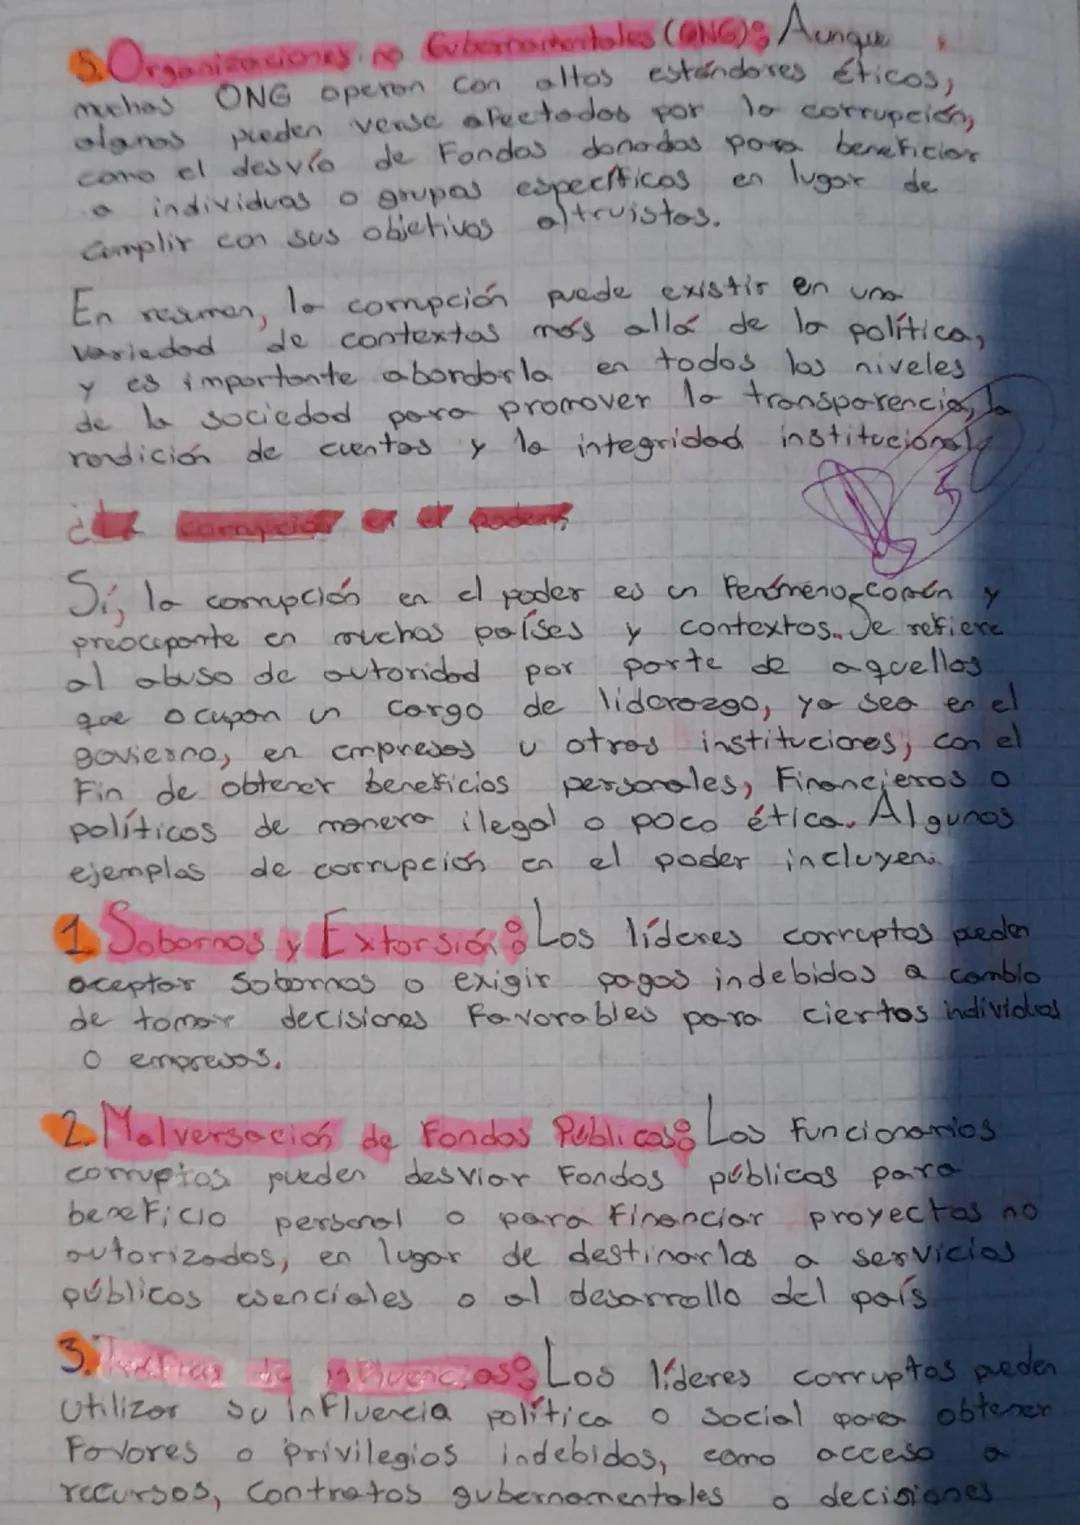 5. Organizaciones no Gubernamentales (ONG): Aunque
muchas ONG operan con altos estándares éticos,
algunas pueden verse afectadas por la corrupción,
como el desvío de Fondos donados para beneficiar
a individuos o grupos específicos en lugar de
cumplir con sus objetivos altruistas.
En resumen, la corrupción puede existir en una
variedad de contextos más allá de la política,
y es importante abordarla en todos los niveles
de la sociedad para promover la transparencia, la
rendición de cuentas y la integridad institucional
¿La corrupción en el poder?
Sí, la corrupción en el poder es un Fenómeno común y
preocupante en muchos países y contextos. Se refiere
al abuso de autoridad por parte de aquellos
que ocupan un cargo de liderazgo, ya sea en el
govierno, en empresas u otras instituciones, con el
Fin de obtener beneficios personales, Financieros o
políticos de manera ilegal o poco ética. Algunos
ejemplos de corrupción en el poder incluyen:
1. Sobornos y Extorsión: Los líderes corruptos pueden
aceptar Sobornos o exigir pagos indebidos a cambio
de tomar decisiones Favorables para ciertos individuos
o empresas.
2. Malversación de Fondos Públicos: Los Funcionarios
corruptos pueden desviar Fondos públicos para
beneficio personal o para Financiar proyectos no
autorizados, en lugar de destinarlos a servicios
públicos esenciales o al desarrollo del país
3. de influencias: Los líderes corruptos pueden
Utilizar su influencia política o social para obtener
Favores o privilegios indebidos, como acceso a
recursos, Contratos gubernamentales o decisiones